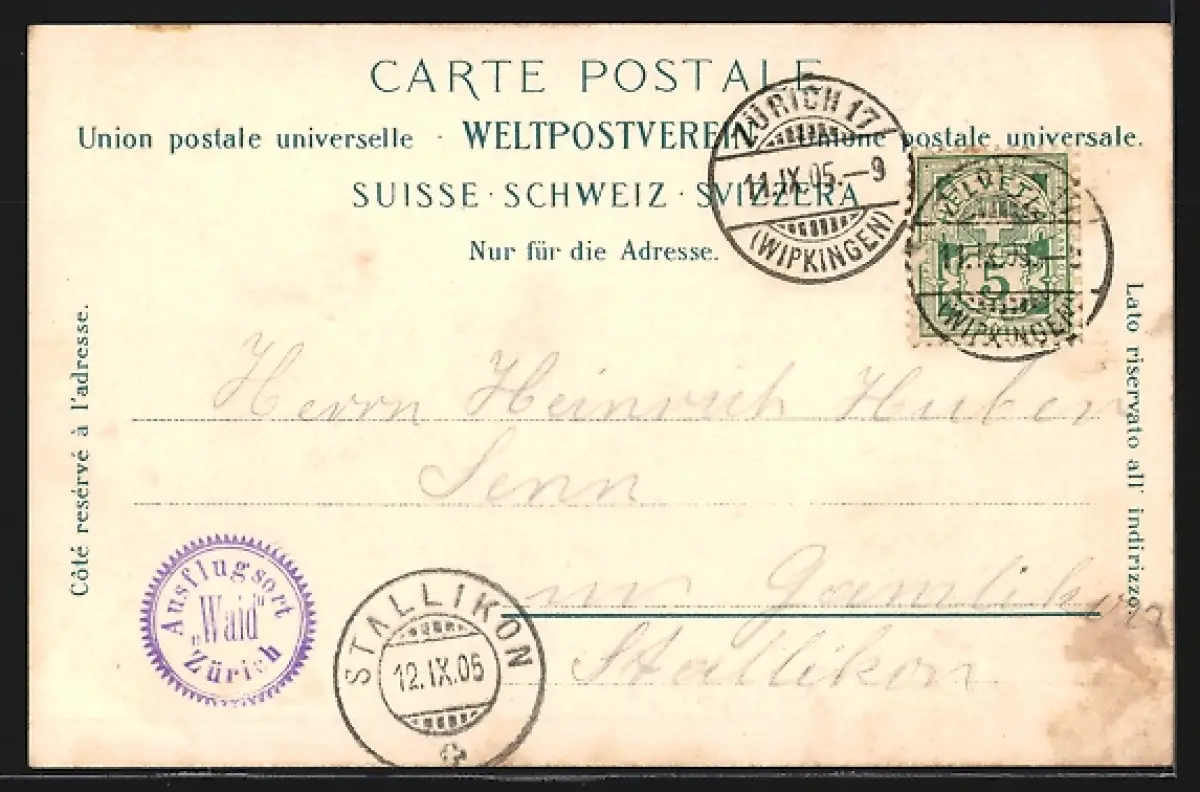 CARTE POSTALE
Union postale universelle · WELTPOSTVEREIN · Unione postale universale.
SUISSE · SCHWEIZ · SVIZZERA
Nur für die Adresse.
ZÜRICH 17
11.IX.05.—9
(WIPKINGEN)
HELVETIA
5
11.IX.05.—
(WIPKINGEN)
Côté resérvé à l'adresse.
Lato riservato all' indirizzo.
Herrn Heinrich Huber
Senn
in Gamlikon
Stallikon
Ausflugsort
„Waid“
Zürich
STALLIKON
12.IX.05